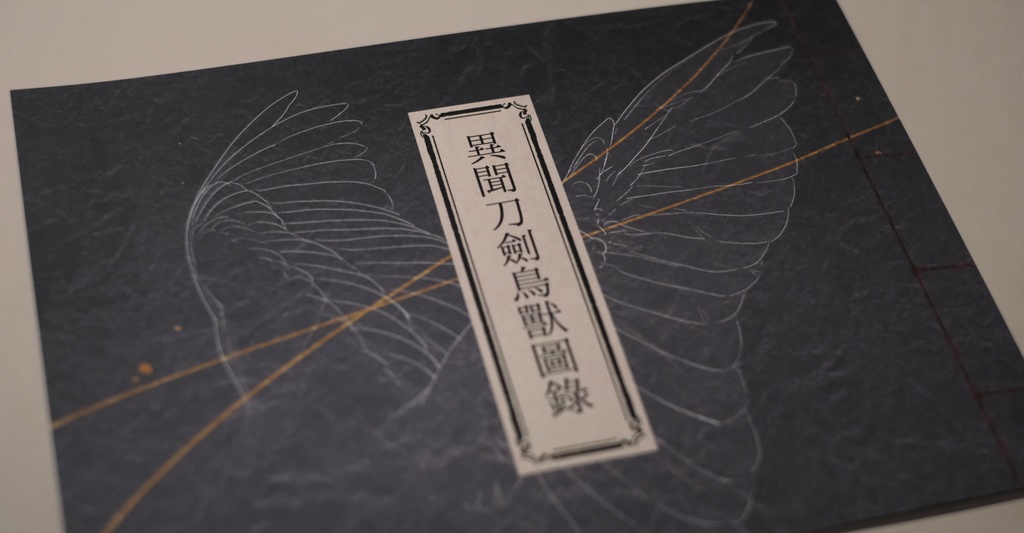 異聞刀劍鳥獸圖錄